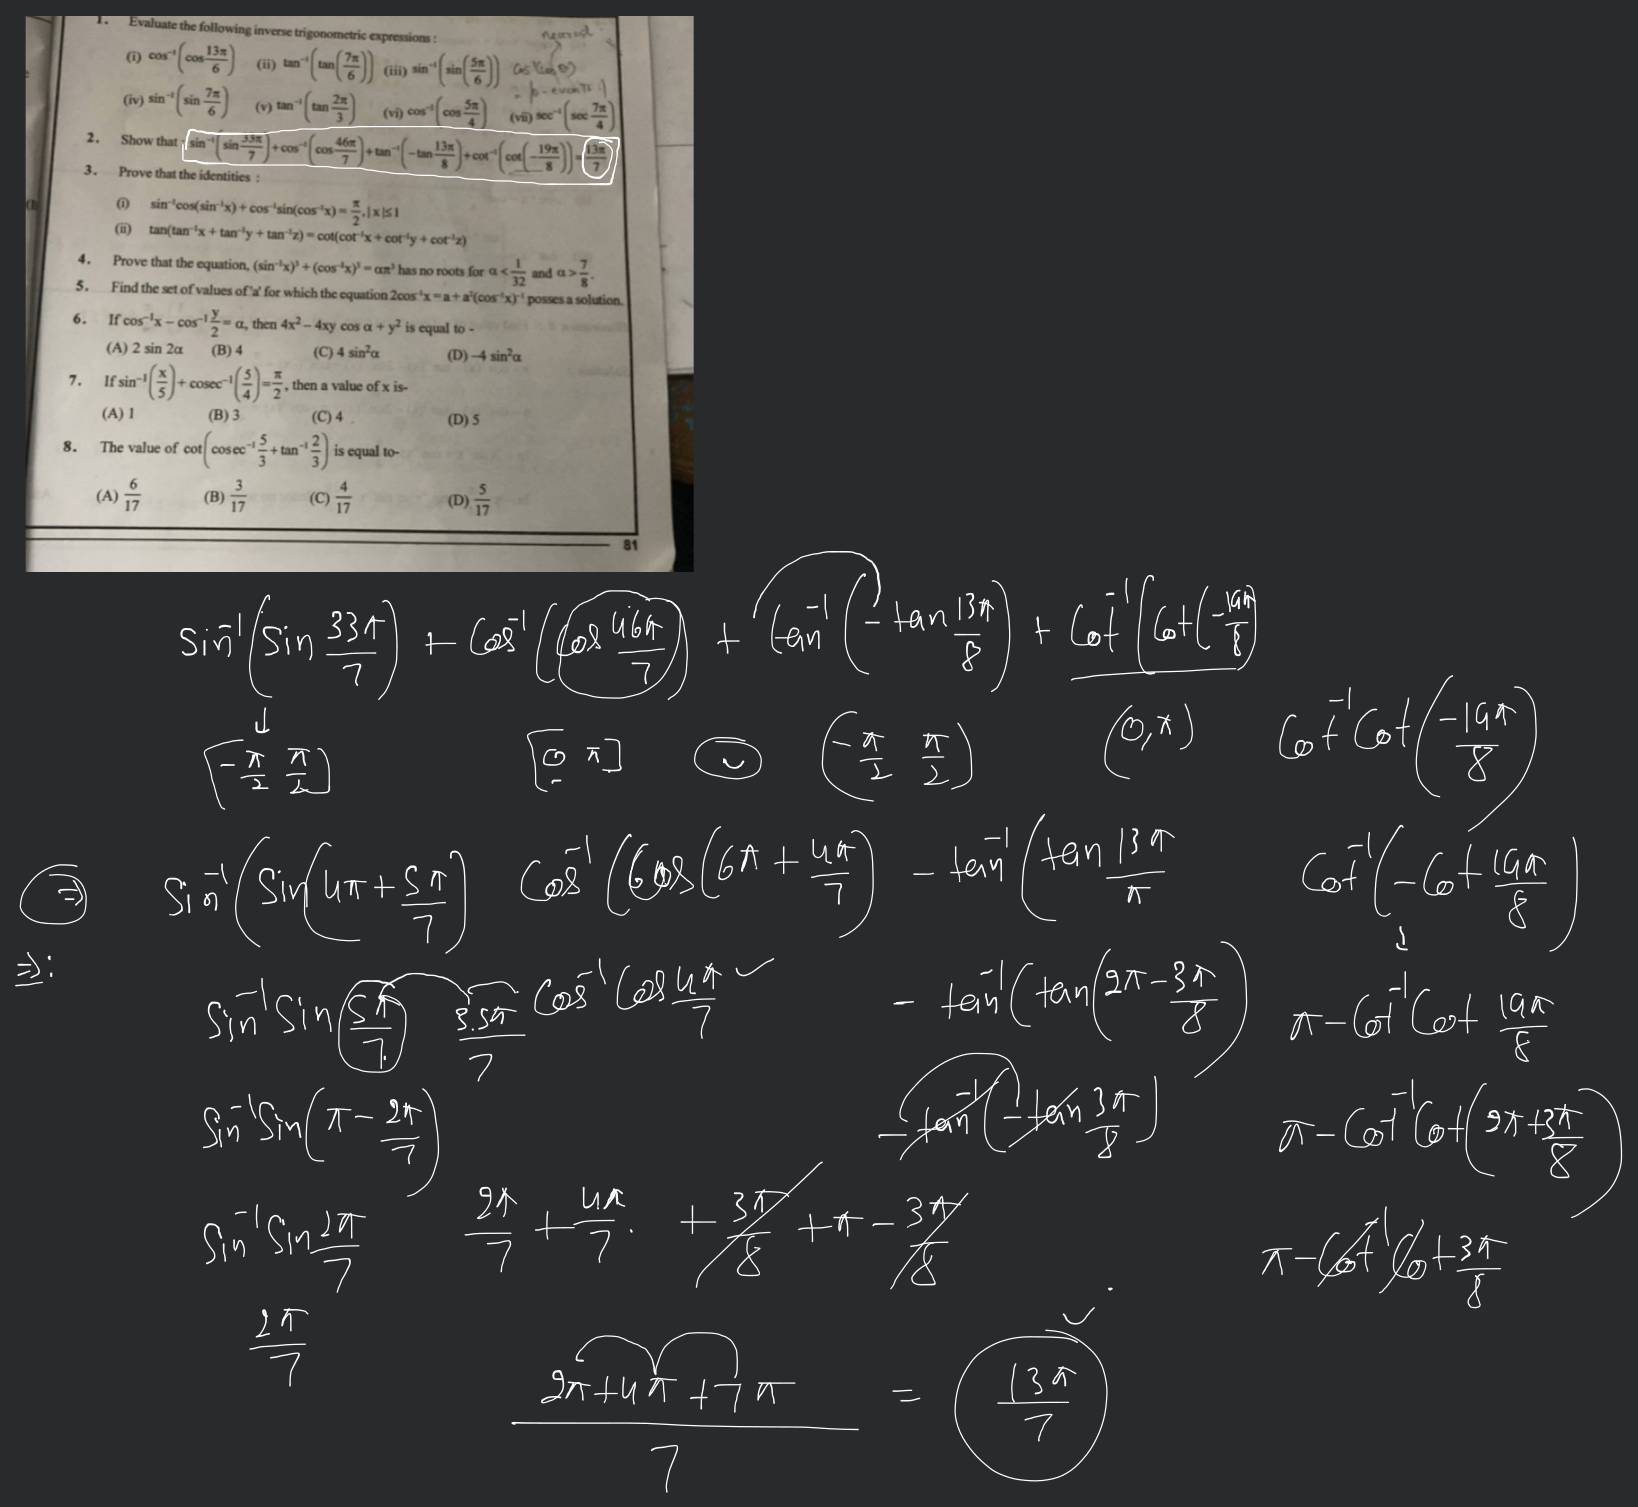 1. Evaluate the following inverse trigonometric expressions :
(i) cos⁻¹(cos 13π/6) (ii) tan⁻¹(tan(7π/6)) (iii) sin⁻¹(sin(5π/6))
(iv) sin⁻¹(sin 7π/6) (v) tan⁻¹(tan 2π/3) (vi) cos⁻¹(cos 5π/4) (vii) sec⁻¹(sec 7π/4)
2. Show that sin⁻¹(sin 33π/7) + cos⁻¹(cos 46π/7) + tan⁻¹(-tan 13π/8) + cot⁻¹(cot(-19π/8)) = 13π/7
3. Prove that the identities :
(i) sin⁻¹cos(sin⁻¹x) + cos⁻¹sin(cos⁻¹x) = π/2, |x|≤1
(ii) tan(tan⁻¹x + tan⁻¹y + tan⁻¹z) = cot(cot⁻¹x + cot⁻¹y + cot⁻¹z)
4. Prove that the equation, (sin⁻¹x)³ + (cos⁻¹x)³ = απ³ has no roots for α < 1/32 and α > 7/8.
5. Find the set of values of 'a' for which the equation 2cos⁻¹x = a + a²(cos⁻¹x)⁻¹ posses a solution.
6. If cos⁻¹x – cos⁻¹ y/2 = α, then 4x² – 4xy cos α + y² is equal to -
(A) 2 sin 2α (B) 4 (C) 4 sin²α (D) –4 sin²α
7. If sin⁻¹(x/5) + cosec⁻¹(5/4) = π/2, then a value of x is-
(A) 1 (B) 3 (C) 4 (D) 5
8. The value of cot(cosec⁻¹ 5/3 + tan⁻¹ 2/3) is equal to-
(A) 6/17 (B) 3/17 (C) 4/17 (D) 5/17
81
Sin⁻¹(Sin 33π/7) + Cos⁻¹(Cos 46π/7) + tan⁻¹(- tan 13π/8) + Cot⁻¹(Cot(-19π/8)
↓
[-π/2 π/2] [0 π] (-π/2 π/2) (0, π) Cot⁻¹Cot(-19π/8)
⇒ Sin⁻¹(Sin(4π + 5π/7) Cos⁻¹(Cos(6π + 4π/7) - tan⁻¹(tan 13π/π Cot⁻¹(-Cot 19π/8)
⇒: Sin⁻¹Sin 5π/7 3.5π/7 Cos⁻¹Cos 4π/7 ✓ - tan⁻¹(tan(2π - 3π/8) π - Cot⁻¹Cot 19π/8
Sin⁻¹Sin(π - 2π/7) - tan⁻¹(- tan 3π/8) π - Cot⁻¹Cot(2π + 3π/8)
Sin⁻¹Sin 2π/7 2π/7 + 4π/7 + 3π/8 + π - 3π/8 π - Cot⁻¹Cot 3π/8
2π/7
2π + 4π + 7π / 7 = 13π/7